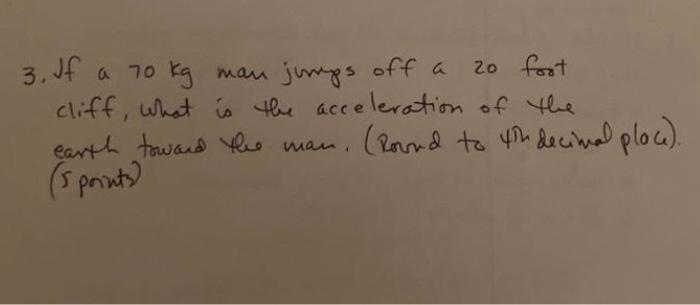 3. If a 70 kg man jumps off a 20 foot
cliff, what is the acceleration of the
earth toward the man. (Round to 4th decimal place).
(5 points)